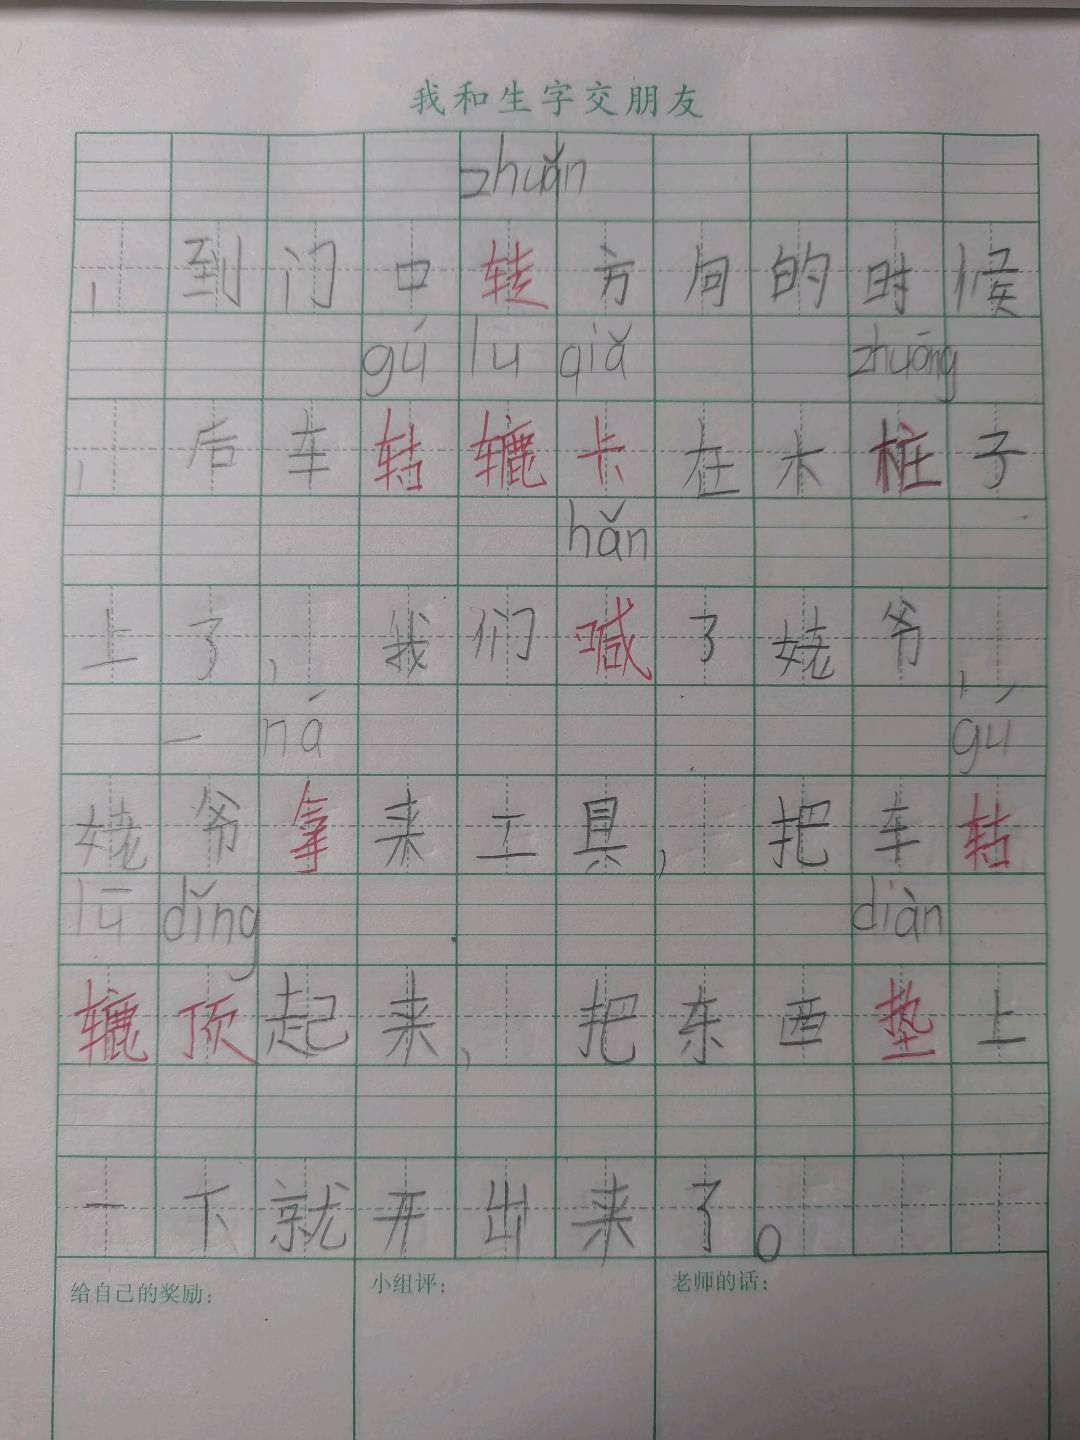 我和生字交朋友
zhuǎn
，到门中转方向的时候
gú lu qiǎ zhuāng
，后车轱辘卡在木桩子
hǎn
上了，我们喊了姥爷，
ná gú
姥爷拿来工具，把车轱
lū dǐng diàn
辘顶起来，把东西垫上
一下就开出来了。
给自己的奖励： 小组评： 老师的话：